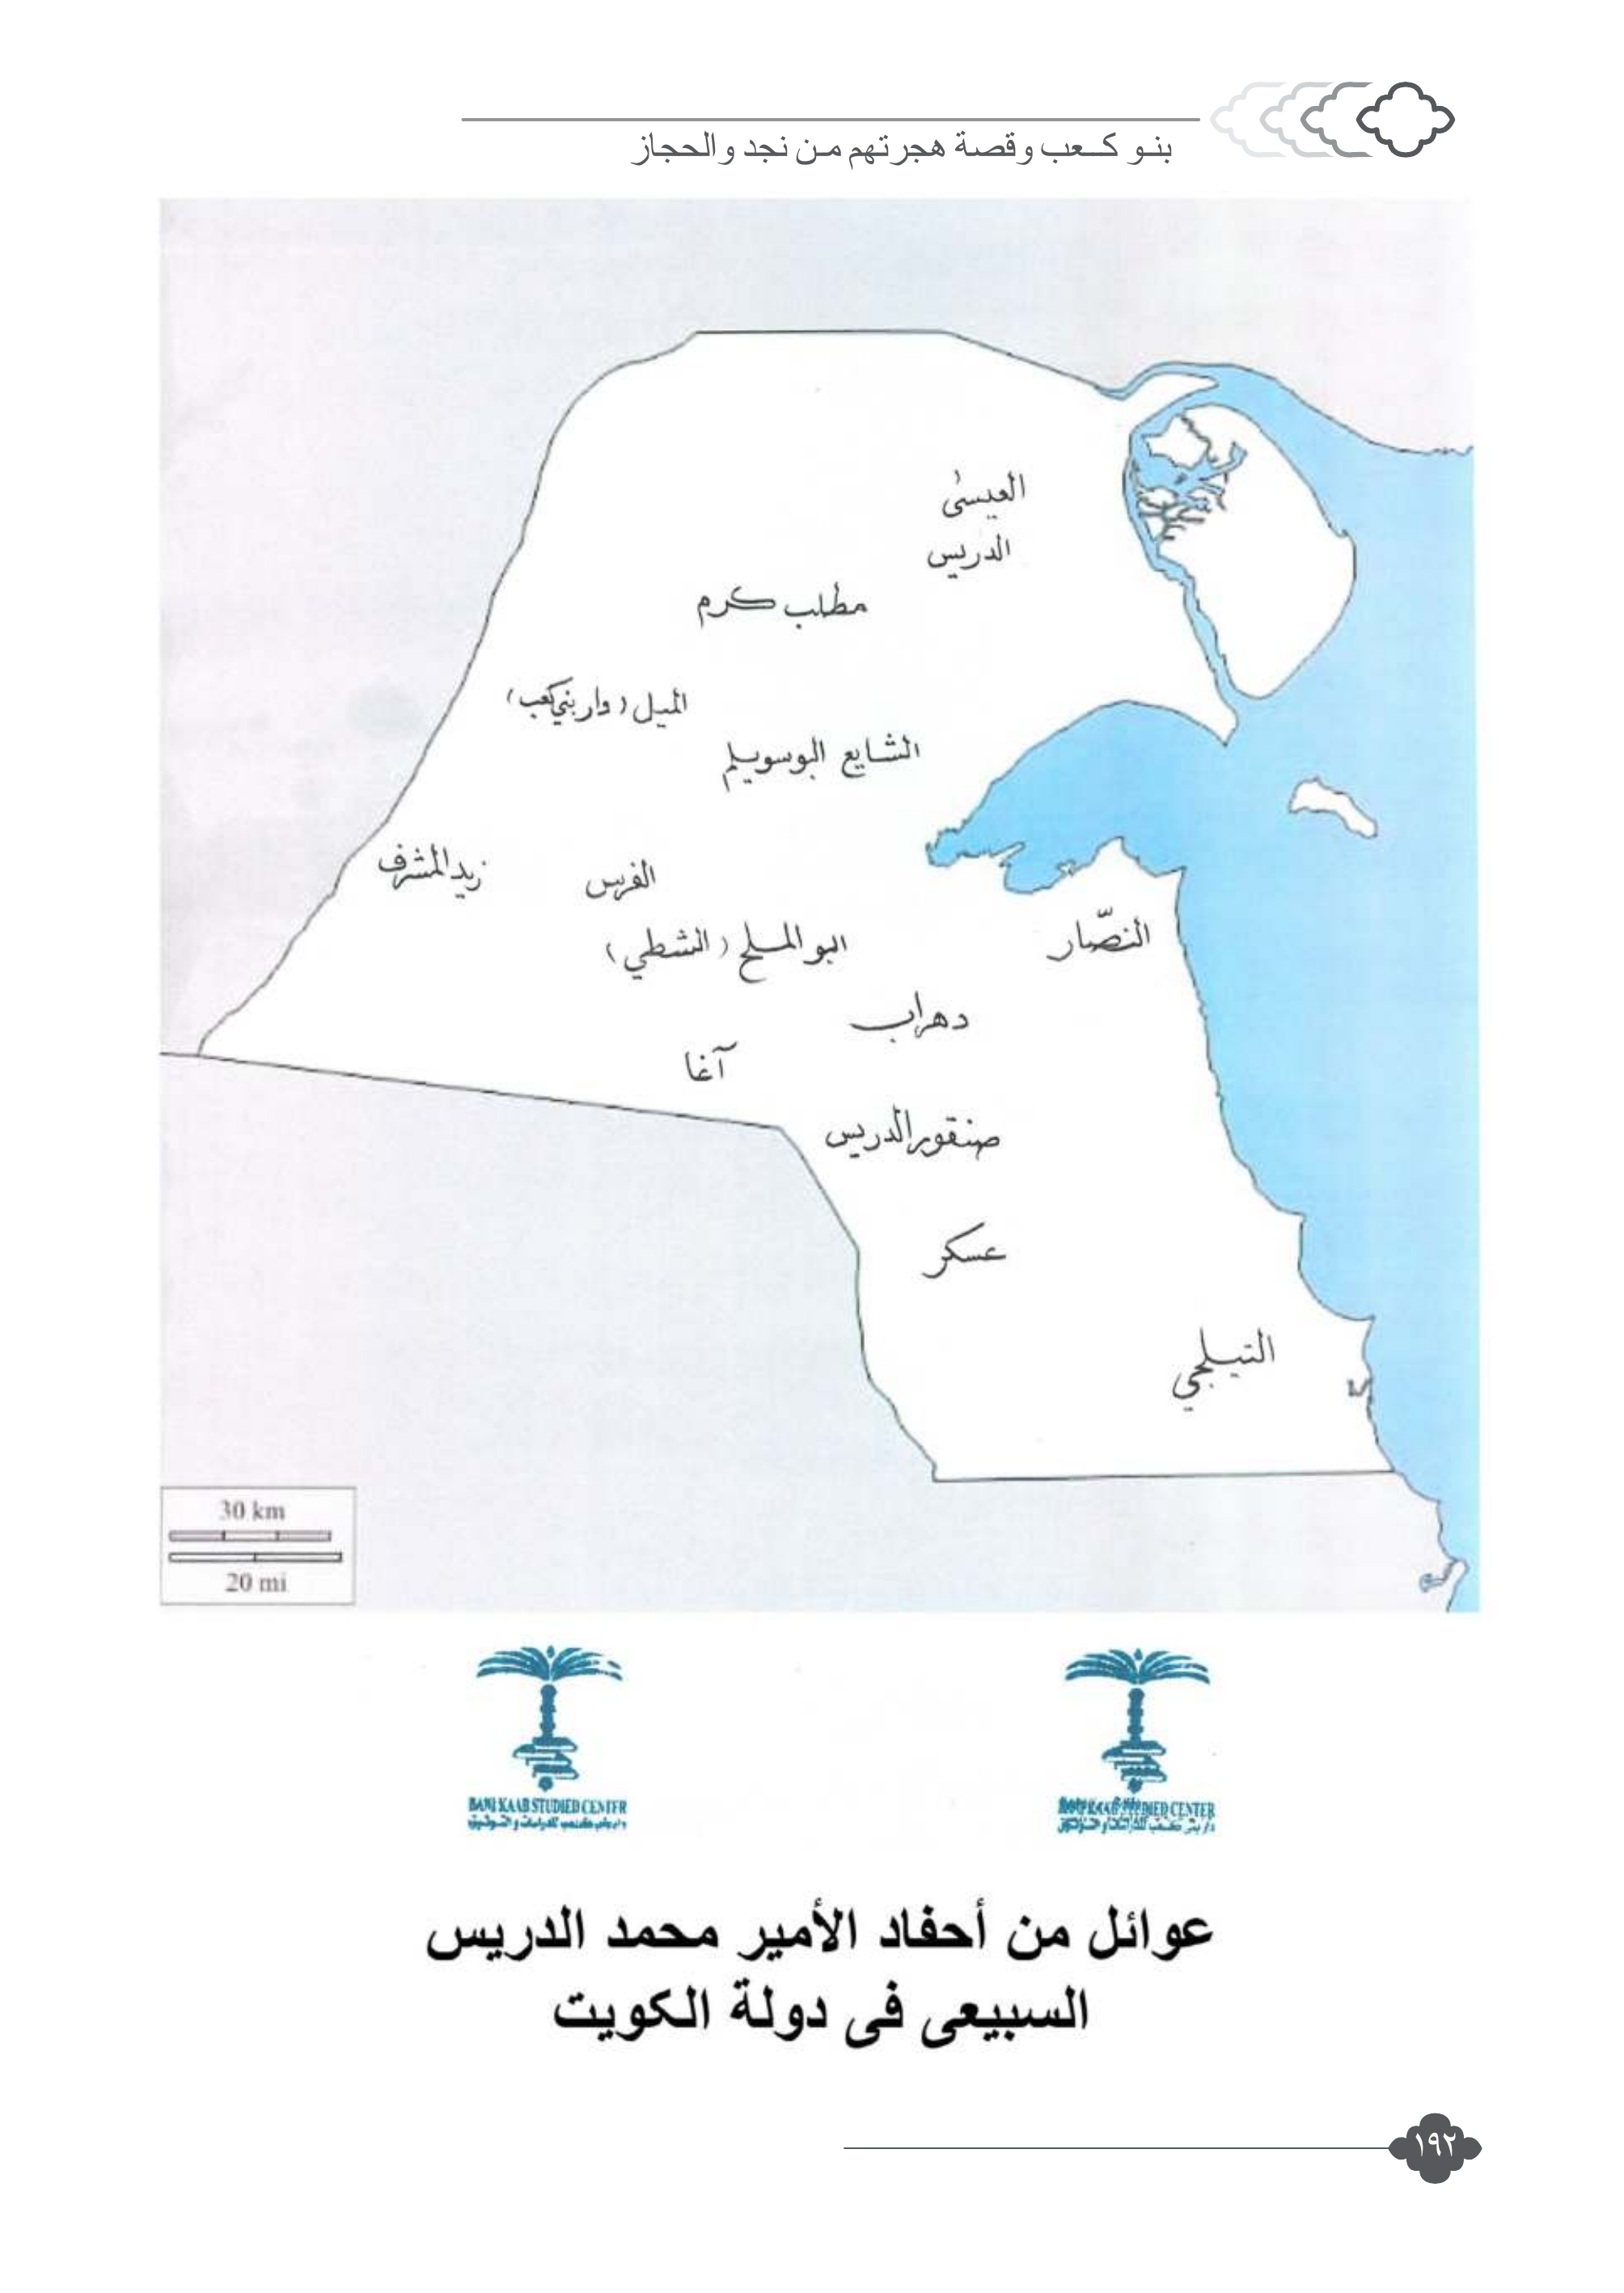 بنو كعب وقصة هجرتهم من نجد والحجاز
العيسىٰ
الدريس
مطلب كرم
الميل (دار بني كعب)
الشايع البوسويلم
زيد المشرف
الفرس
النصّار
البو المسلح (الشطي)
دهراب
آغا
صنقور الدريس
عسكر
التيلجي
30 km
20 mi
BANI KAAB STUDIED CENTER
STUDIED CENTER
عوائل من أحفاد الأمير محمد الدريس
السبيعى فى دولة الكويت
١٩٢